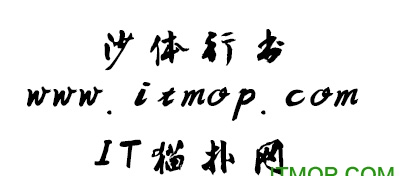 沙体行书
www.itmop.com
IT猫扑网
ITMOP.COM